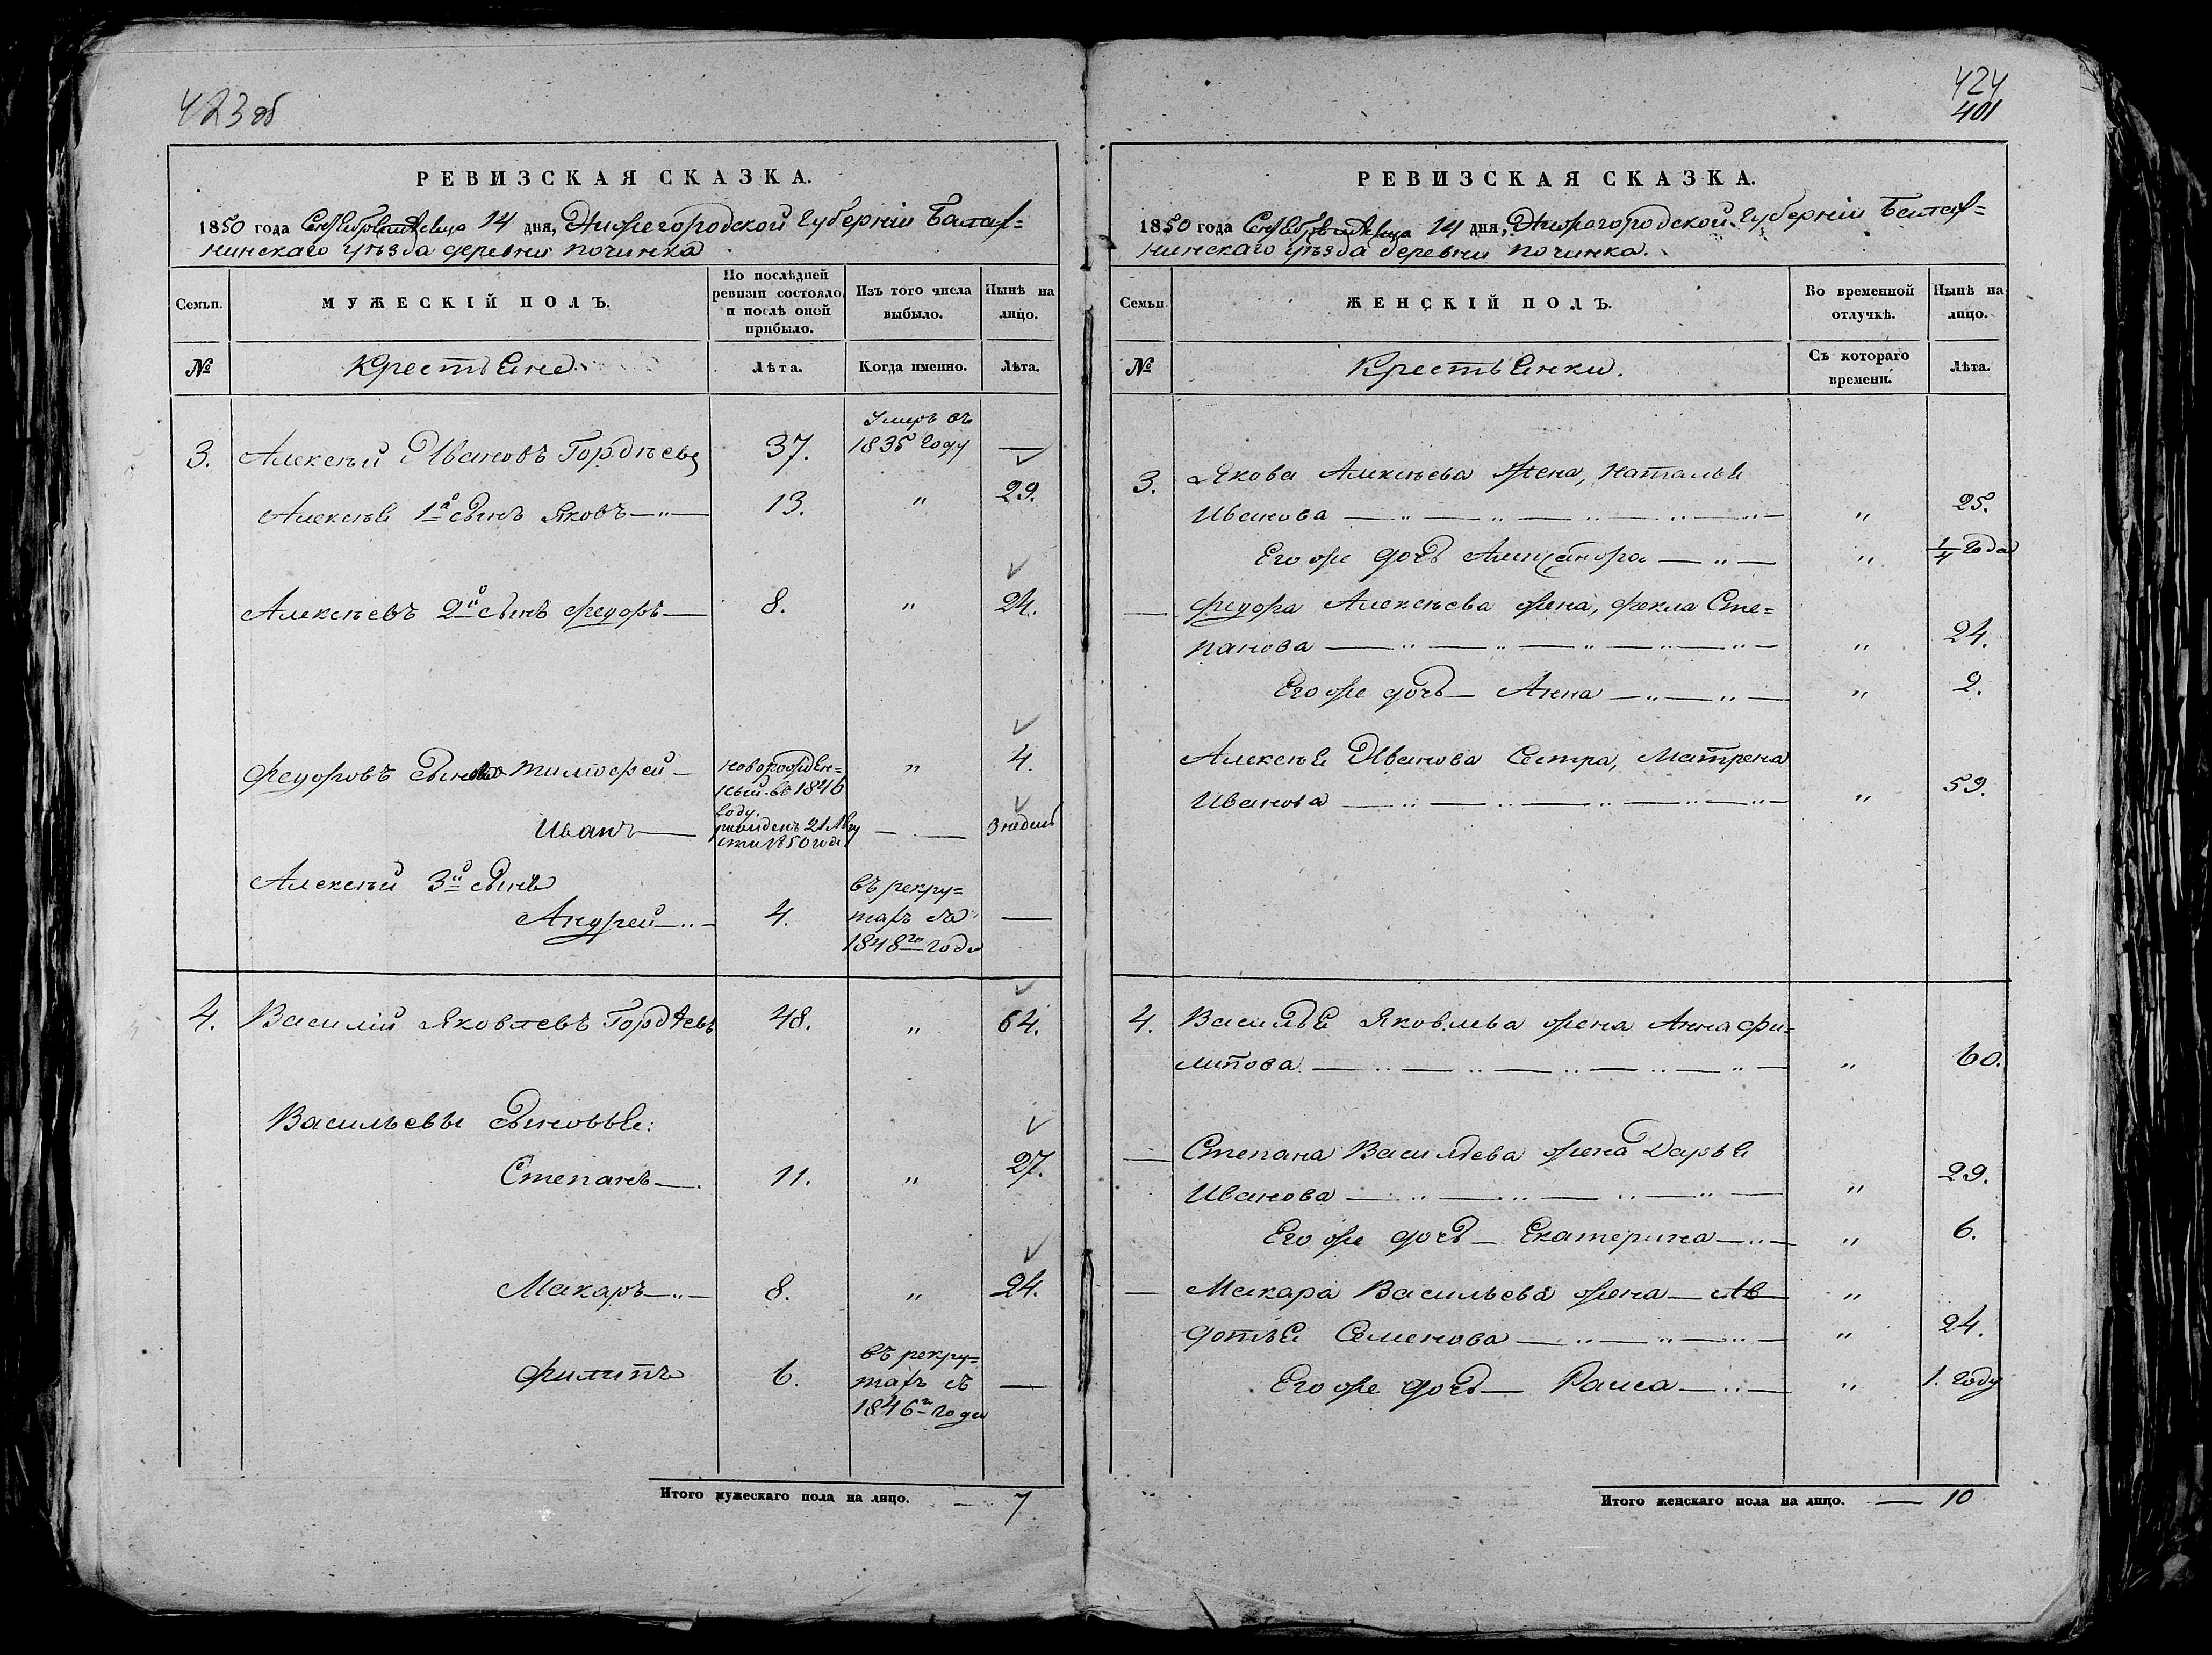 423 об
РЕВИЗСКАЯ СКАЗКА.
1850 года Сентября месяца 14 дня, Нижегородской Губернiи Балах=
нинскаго уѣзда деревни починка
Семьи.
МУЖЕСКІЙ ПОЛЪ.
По послѣдней
ревизіи состояло,
и послѣ оной
прибыло.
Изъ того числа
выбыло.
Нынѣ на
лицо.
№
Крестьяне.
Лѣта.
Когда именно.
Лѣта.
Умеръ въ
3. Алексѣй Ивановъ Гордѣевъ 37. 1835 году —
Алексѣя 1й сынъ Яковъ 13. " 29.
Алексѣевъ 2й сынъ Федоръ 8. " 24.
Федоровъ сынова Тимофей новорожден= " 4.
ный въ 1846
году.
Иванъ рожденъ 21 Авгу — 3 недели
ста 1850 года
Алексѣй 3й сынъ въ рекру=
Андрей 4. тахъ съ —
1848го года
4. Василій Яковлевъ Гордѣевъ 48. " 64.
Васильевы сыновья:
Степанъ 11. " 27.
Макаръ 8. " 24.
въ рекру=
Филипъ 6. тахъ съ —
1846го года
Итого мужескаго пола на лицо. — 7
424
401
РЕВИЗСКАЯ СКАЗКА.
1850 года Сентября месяца 14 дня, Нижегородской Губернiи Балах=
нинскаго уѣзда деревни починка.
Семьи.
ЖЕНСКІЙ ПОЛЪ.
Во временной
отлучкѣ.
Нынѣ на
лицо.
№
Крестьянки.
Съ котораго
времени.
Лѣта.
3. Якова Алексѣева жена, Наталья
Иванова " 25.
Его же дочь Александра " 1/4 года
— Федора Алексѣева жена, Фекла Сте=
панова " 24.
Его же дочь — Анна " 2.
Алексѣя Иванова Сестра, Матрена
Иванова " 59.
4. Василья Яковлева жена Анна Фи=
липова " 60.
— Степана Васильева жена Дарья
Иванова " 29.
Его же дочь — Екатерина " 6.
— Макара Васильева жена — Ав "
дотья Семенова " 24.
Его же дочь — Раиса " 1. году
Итого женскаго пола на лицо. — 10